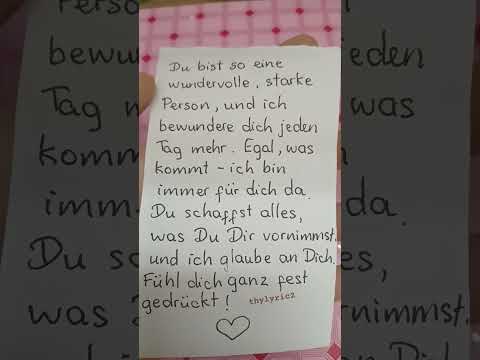 Du bist so eine
wundervolle, starke
Person, und ich
bewundere dich jeden
Tag mehr. Egal, was
kommt - ich bin
immer für dich da.
Du schaffst alles,
was Du Dir vornimmst
und ich glaube an Dich.
Fühl dich ganz fest
gedrückt!
thylyric2